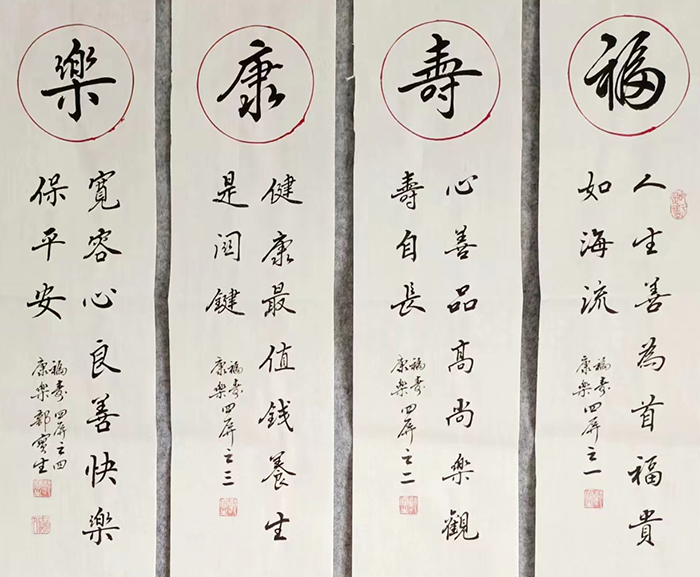 福
人生善為首福貴
如海流
福壽康樂四屏之一
壽
心善品高尚樂觀
壽自長
福壽康樂四屏之二
康
健康最值钱養生
是关鍵
福壽康樂四屏之三
樂
寬容心良善快樂
保平安
福壽康樂四屏之四
郭寶生